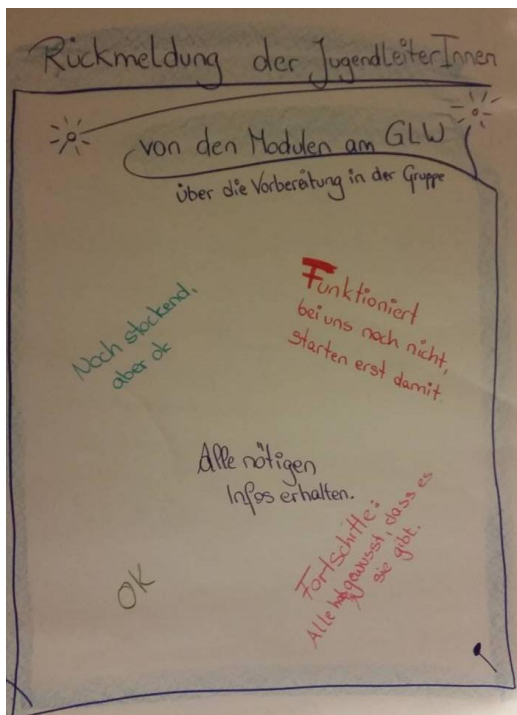 Rückmeldung der JugendleiterInnen
von den Modulen am GLW
über die Vorbereitung in der Gruppe
Noch stockend,
aber ok
Funktioniert
bei uns noch nicht,
starten erst damit.
Alle nötigen
Infos erhalten.
OK
Fortschritte:
Alle gewusst, dass es
sie gibt.